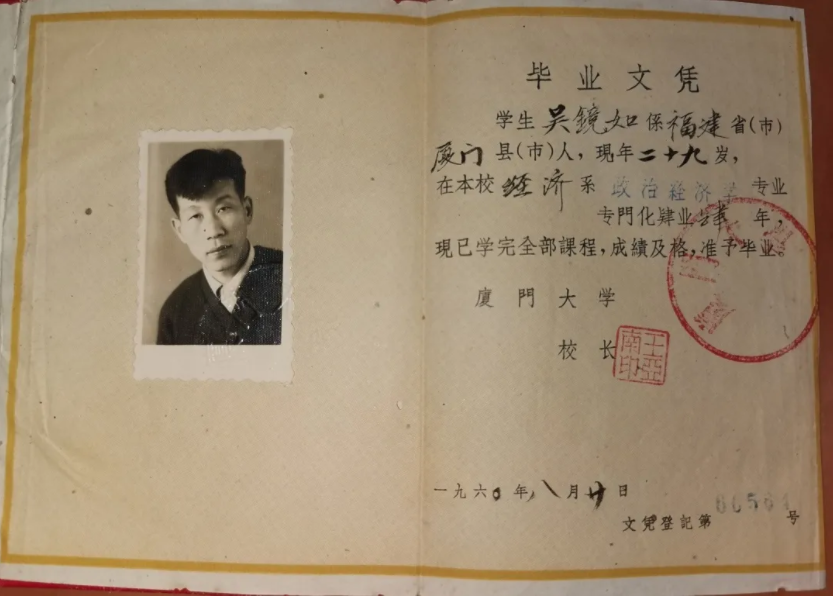 毕业文凭
学生吴鏡如係福建省(市)
厦门县(市)人，现年二十九岁，
在本校经济系政治经济学专业
专門化肄业年，
现已学完全部課程，成績及格，准予毕业。
廈門大学
校长
王亞南印
一九六〇年八月廿日
文凭登記第号